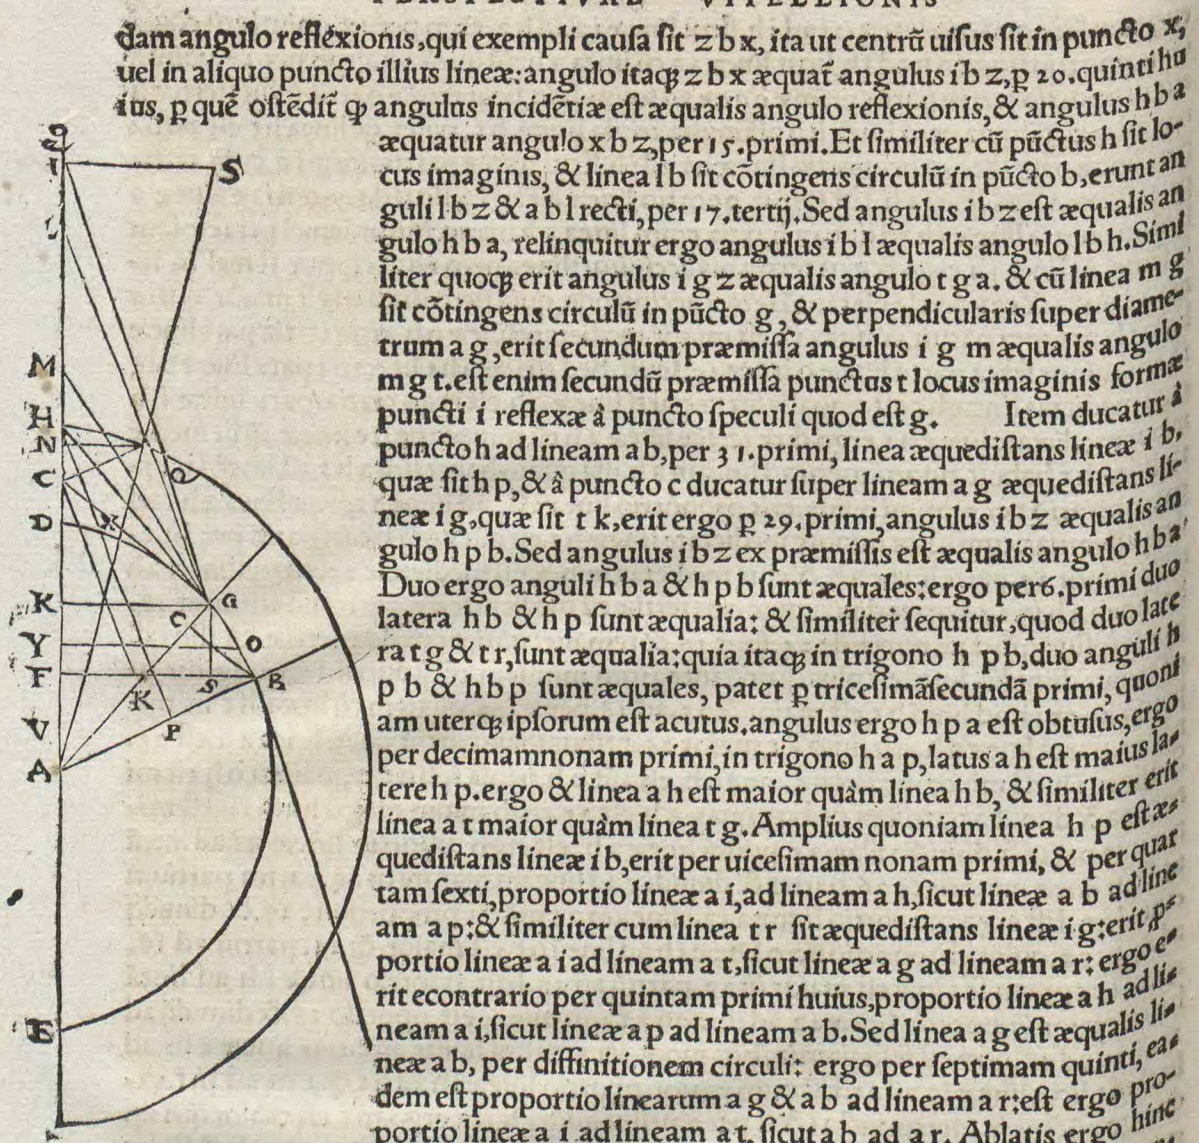 PERSPECTIVAE VITELLIONIS
dam angulo reflexionis, qui exempli causa sit z b x, ita ut centrũ uisus sit in puncto x,
uel in aliquo puncto illius lineæ: angulo itaqꝫ z b x æquat̃ angulus i b z, ꝑ 20. quinti hu
ius, ꝑ quẽ ostẽdit̃ ꝙ angulus incidẽtiæ est æqualis angulo reflexionis, & angulus h b a
æquatur angulo x b z, per 15. primi. Et similiter cũ pũctus h sit lo-
cus imaginis, & linea l b sit cõtingens circulũ in pũcto b, erunt an
guli l b z & a b l recti, per 17. tertij. Sed angulus i b z est æqualis an
gulo h b a, relinquitur ergo angulus i b l æqualis angulo l b h. Simi
liter quoqꝫ erit angulus i g z æqualis angulo t g a. & cũ linea m g
sit cõtingens circulũ in pũcto g, & perpendicularis super diame-
trum a g, erit secundum præmissa angulus i g m æqualis angulo
m g t. est enim secundũ præmissa punctus t locus imaginis formæ
puncti i reflexæ â puncto speculi quod est g. Item ducatur â
puncto h ad lineam a b, per 31. primi, linea æquedistans lineæ i b,
quæ sit h p, & â puncto c ducatur super lineam a g æquedistans li-
neæ i g, quæ sit t k, erit ergo ꝑ 29. primi, angulus i b z æqualis an
gulo h p b. Sed angulus i b z ex præmissis est æqualis angulo h b a
Duo ergo anguli h b a & h p b sunt æquales: ergo per 6. primi duo
latera h b & h p sunt æqualia: & similiter sequitur, quod duo late
ra t g & t r, sunt æqualia: quia itaqꝫ in trigono h p b, duo anguli h
p b & h b p sunt æquales, patet ꝑ tricesimãsecundã primi, quoni
am uterqꝫ ipsorum est acutus, angulus ergo h p a est obtusus, ergo
per decimamnonam primi, in trigono h a p, latus a h est maius la-
tere h p. ergo & linea a h est maior quàm linea h b, & similiter erit
linea a t maior quàm linea t g. Amplius quoniam linea h p est æ-
quedistans lineæ i b, erit per uicesimam nonam primi, & per quar
tam sexti, proportio lineæ a i, ad lineam a h, sicut lineæ a b ad line
am a p: & similiter cum linea t r sit æquedistans lineæ i g: erit p-
portio lineæ a i ad lineam a t, sicut lineæ a g ad lineam a r: ergo e-
rit econtrario per quintam primi huius, proportio lineæ a h ad li-
neam a i, sicut lineæ a p ad lineam a b. Sed linea a g est æqualis li-
neæ a b, per diffinitionem circuli: ergo per septimam quinti, ea-
dem est proportio linearum a g & a b ad lineam a r: est ergo pro-
portio lineæ a i ad lineam a t, sicut a b ad a r. Ablatis ergo hinc
I
S
L
M
H
N
C
Q
D
X
K
G
C
Y
O
F
K
S
B
V
P
A
E